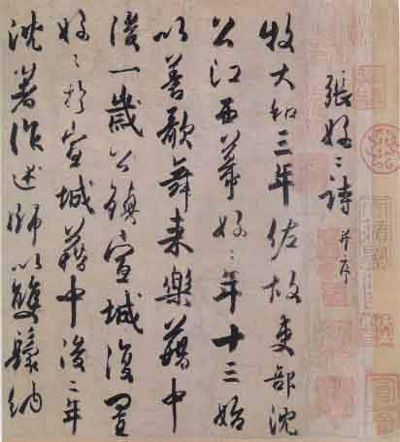 張好〻詩并序
牧大和三年佐故吏部沈
公江西幕好〻年十三始
以善歌舞来樂籍中
後一歲公鎮宣城復置
好〻於宣城籍中後二年
沈著作述師以雙鬟納